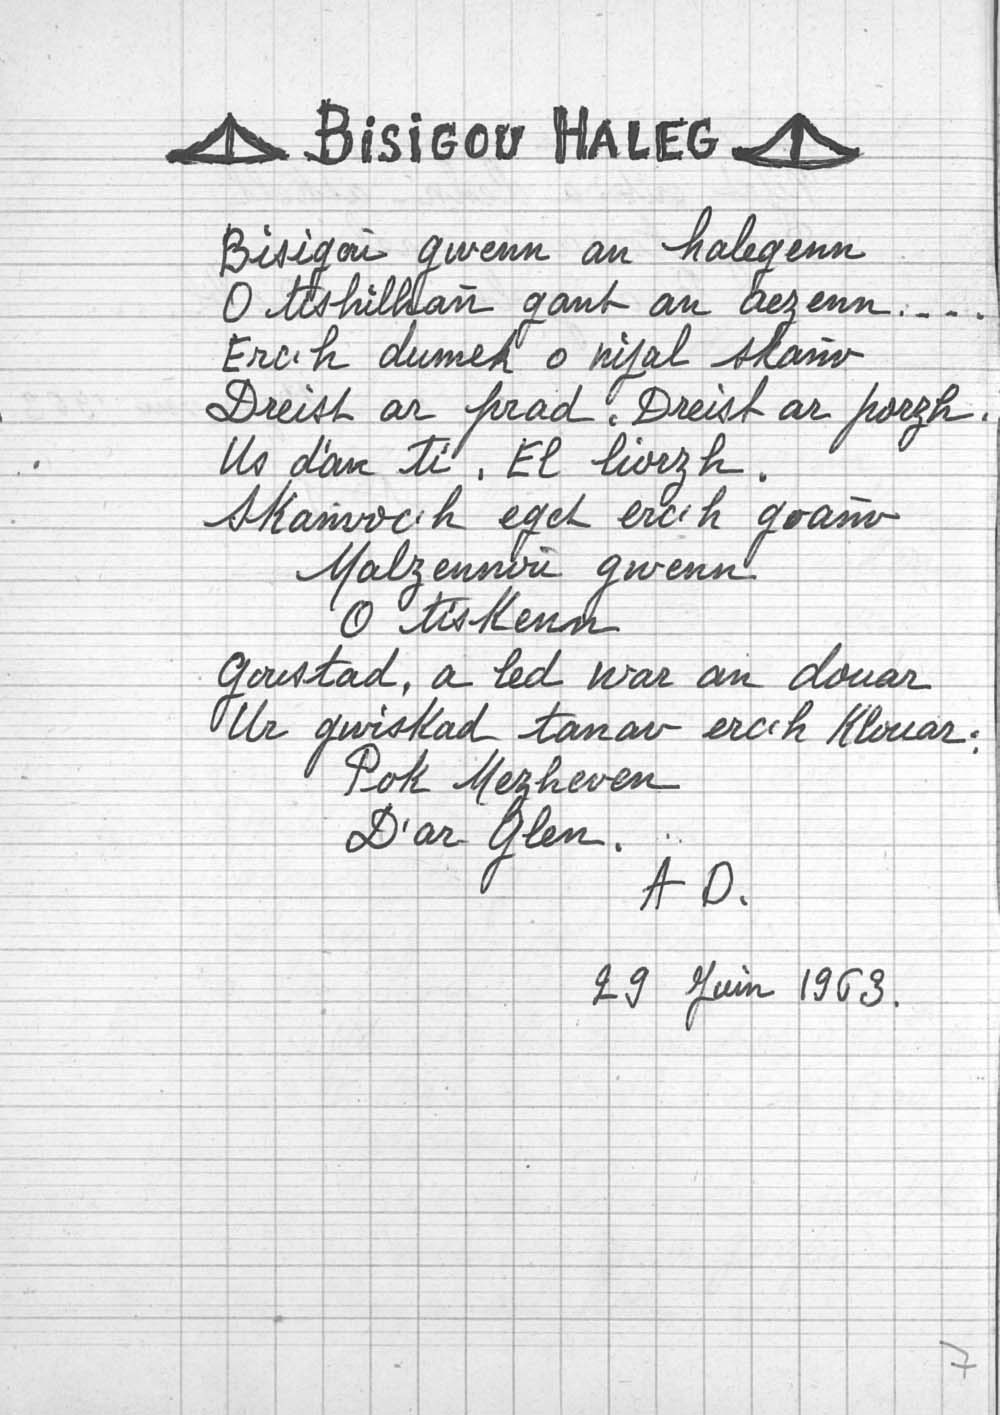 BISIGOU HALEG
Bisigoù gwenn an halegenn
O tishilhañ gant an aezenn....
Erc'h dumek o nijal skañv
Dreist ar prad. Dreist ar porzh.
Us d'an ti. El liorzh.
Skañvoc'h eget erc'h goañv
Malzennoù gwenn
O tiskenn
Goustad, a led war an douar
Ur gwiskad tanav erc'h klouar:
Pok Mezheven
D'ar Glen.
A D.
29 Juin 1963.
7